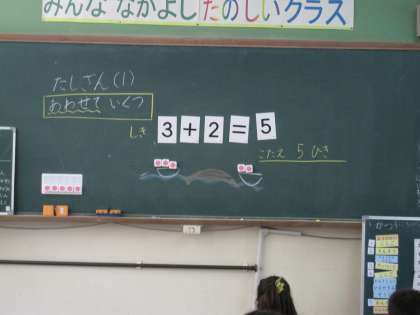 みんな なかよし たのしいクラス
たしざん(1)
あわせて いくつ
しき
3+2=5
こたえ 5ひき